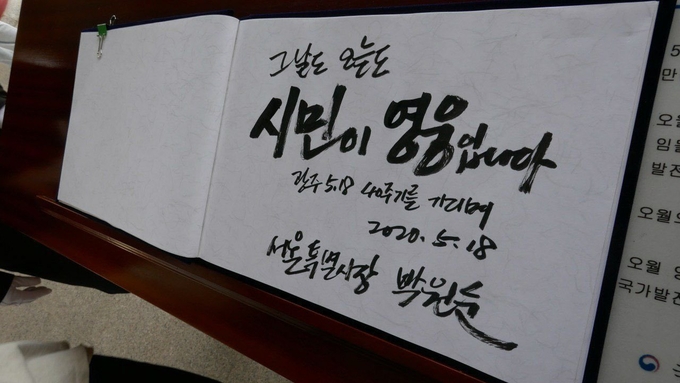 그날도 오늘도
시민이 영웅입니다
광주 5.18 40주기를 기리며
2020. 5. 18
서울특별시장 박원순
5
만
오월
임을
발전
오월으
오월 영
국가발전